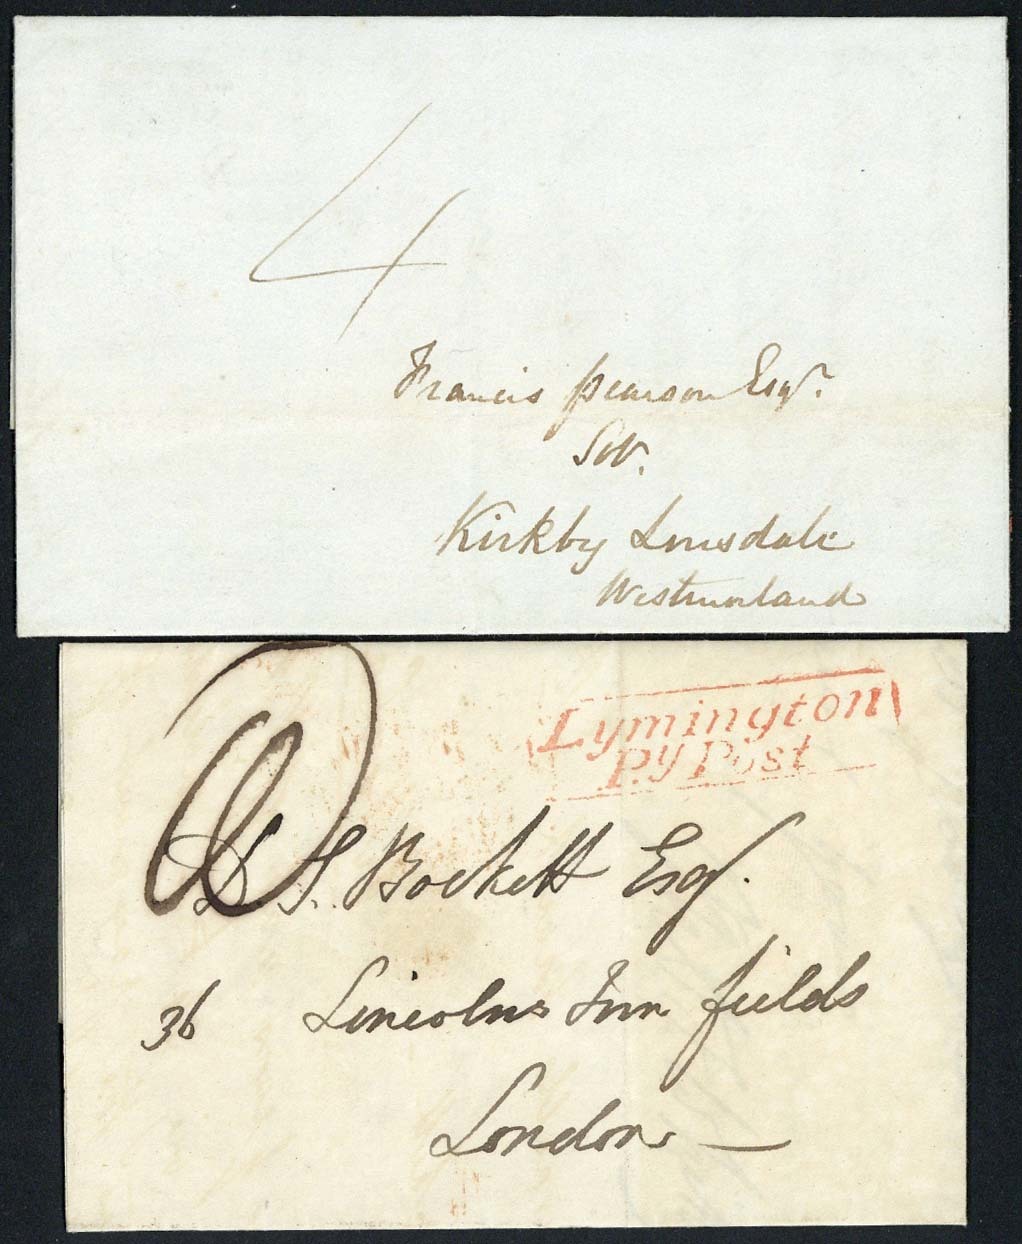 4
Francis Pearson Esqr.
Solr.
Kirkby Lonsdale
Westmorland
Lymington
Py Post
D. S. Bockett Esqr.
36 Lincolns Inn fields
London